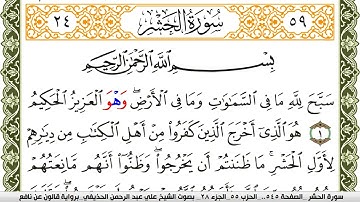 ٥٩ سُورَةُ الحَشْرِ ٢٤
بِسْمِ اللَّهِ الرَّحْمَٰنِ الرَّحِيمِ
سَبَّحَ لِلهِ مَا فِي السَّمَٰوَٰتِ وَمَا فِي الْأَرْضِۖ وَهْوَ الْعَزِيزُ الْحَكِيمُ
١ هُوَ الَّذِي أَخْرَجَ الَّذِينَ كَفَرُوا مِنْ أَهْلِ الْكِتَٰبِ مِن دِيَٰرِهِمْ
لِأَوَّلِ الْحَشْرِۖ مَا ظَنَنتُمْ أَن يَخْرُجُواْۖ وَظَنُّواْ أَنَّهُم مَّانِعَتُهُمْ
سورة الحشر .. الصفحة ٥٤٥.. الحزب ٥٥ .الجزء ٢٨ .. بصوت الشيخ علي عبد الرحمن الحذيفي .برواية قالون عن نافع